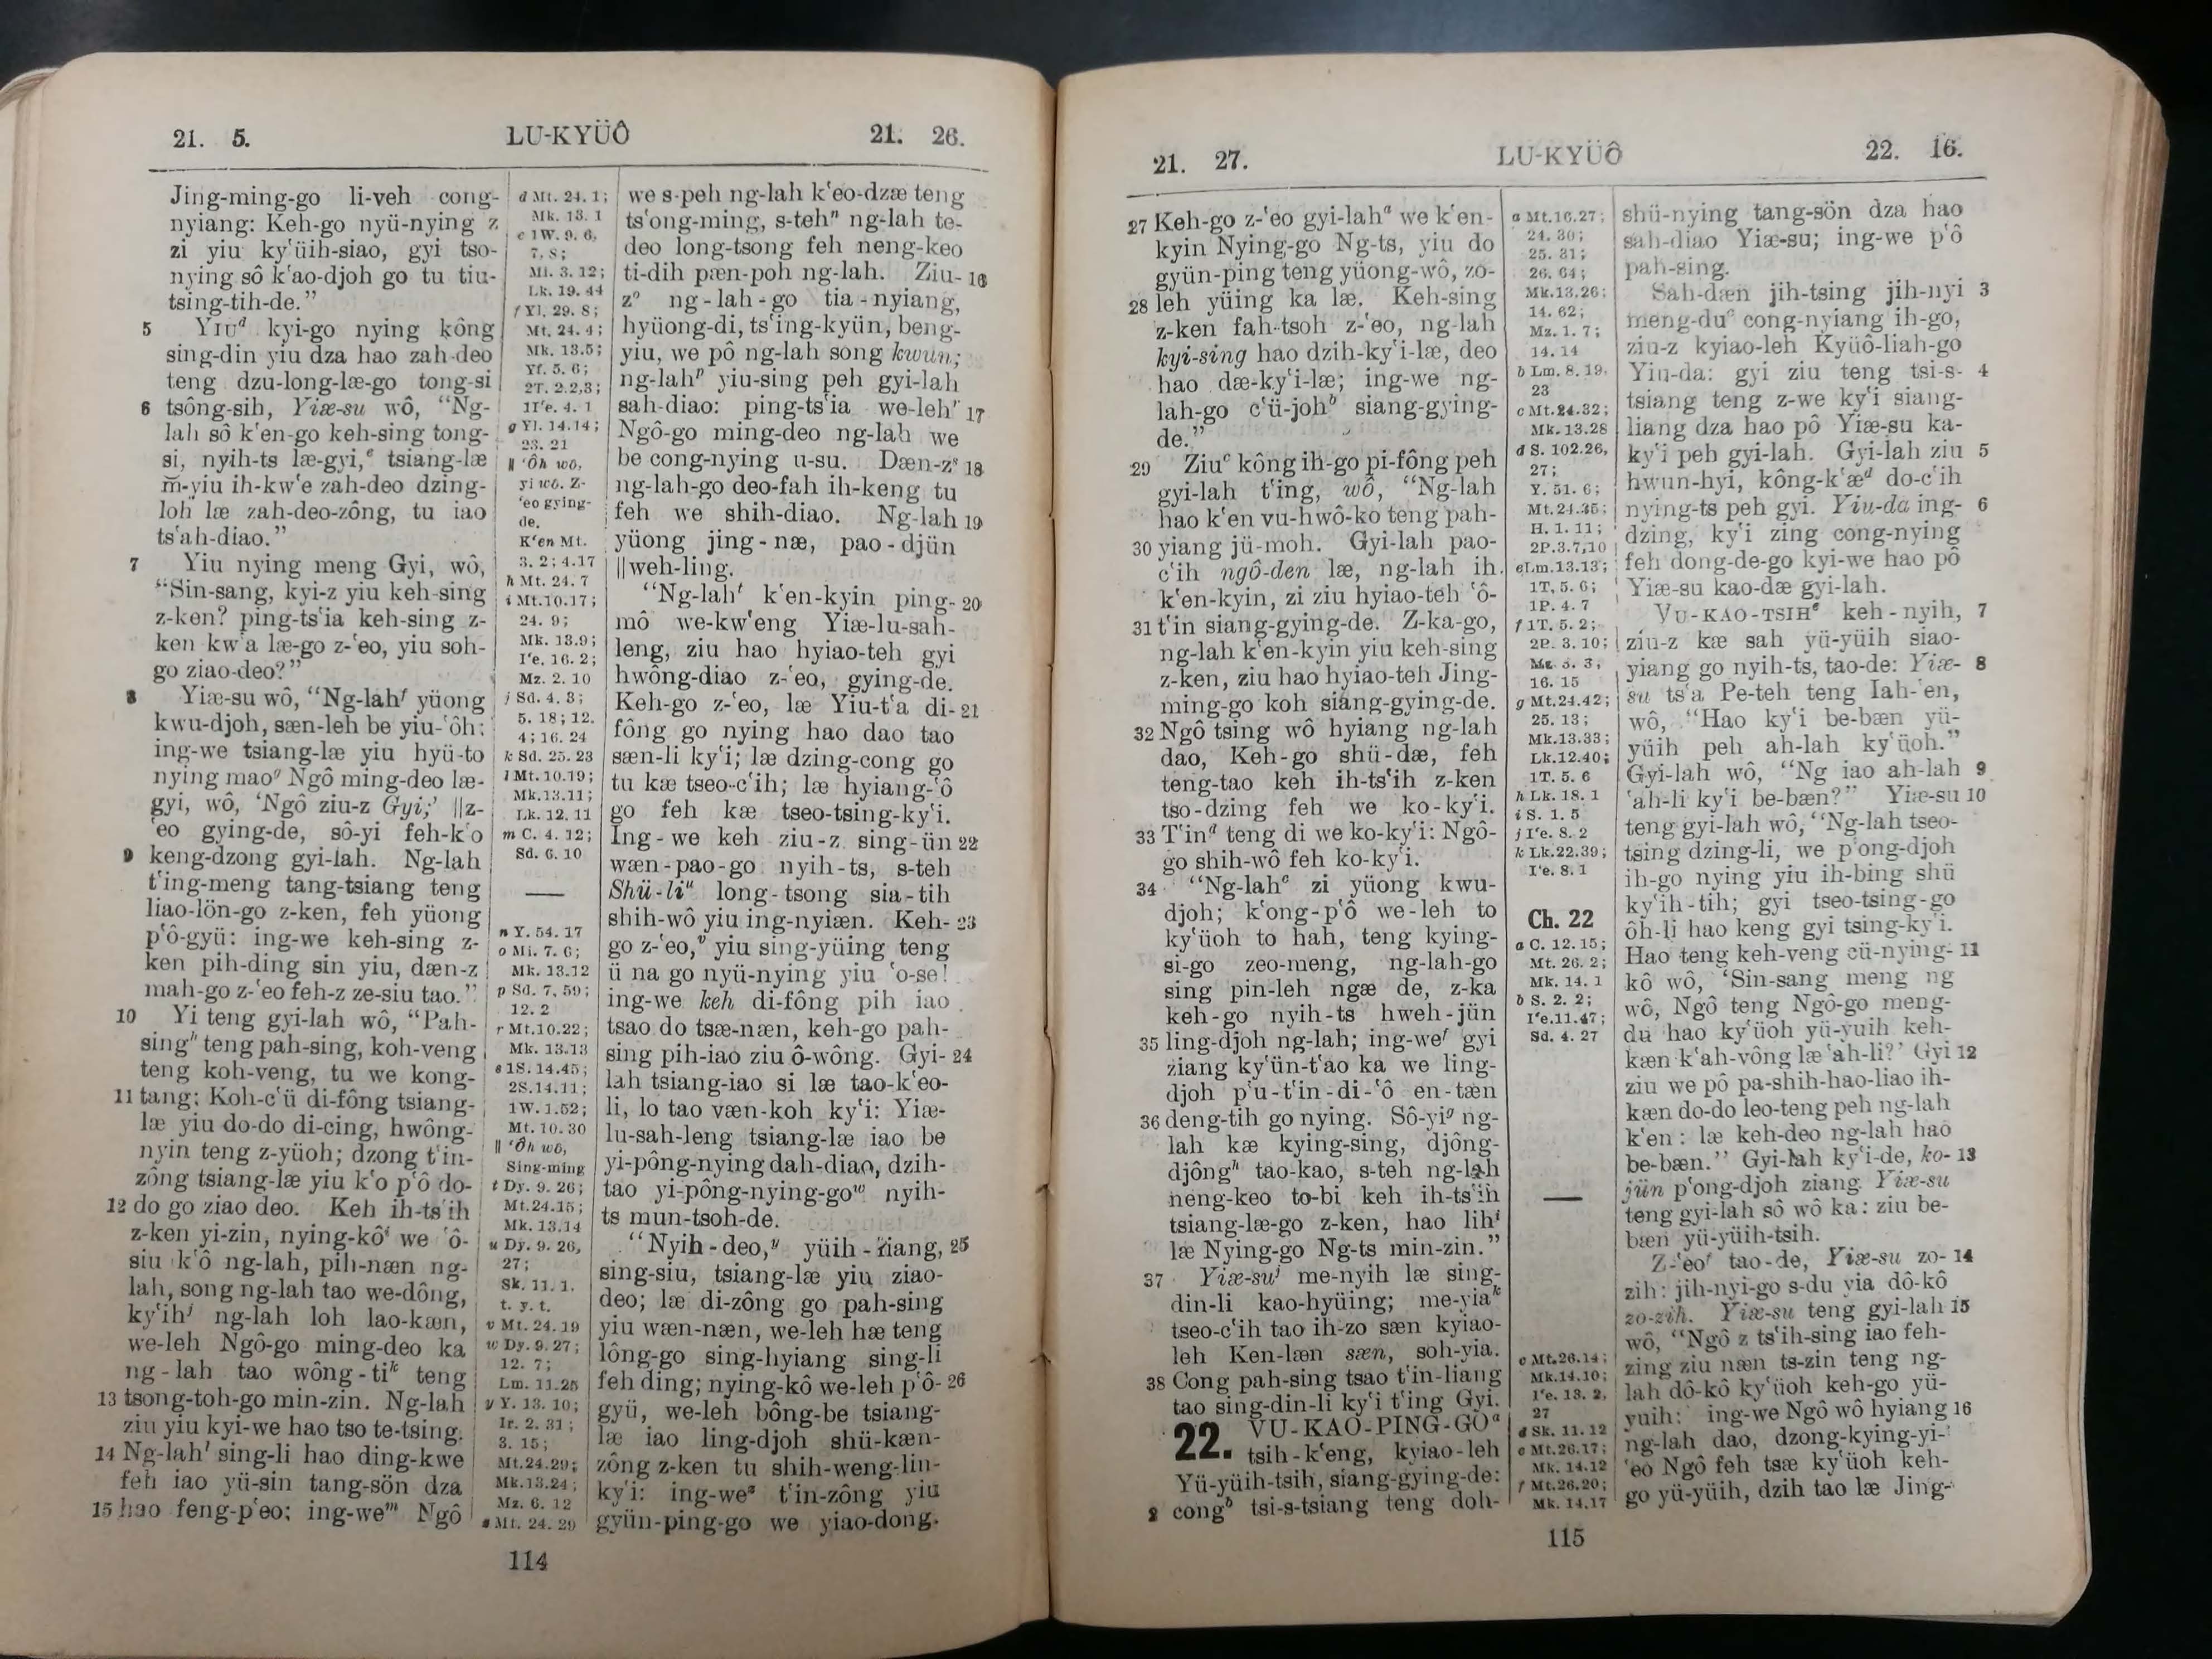 21. 5. LU-KYÜÔ 21. 26.
Jing-ming-go li-veh cong-
nyiang: Keh-go nyü-nying z
zi yiu ky‘üih-siao, gyi tso-
nying sô k‘ao-djoh go tu tiu-
tsing-tih-de.”
5 YIUᵈ kyi-go nying kông
sing-din yiu dza hao zah-deo
teng dzu-long-læ-go tong-si
6 tsông-sih, Yiæ-su wô, “Ng-
lah sô k‘en-go keh-sing tong-
si, nyih-ts læ-gyi,ᵉ tsiang-læ
m̄-yiu ih-kw‘e zah-deo dzing-
loh læ zah-deo-zông, tu iao
ts‘ah-diao.”
7 Yiu nying meng Gyi, wô,
“Sin-sang, kyi-z yiu keh-sing
z-ken? ping-ts‘ia keh-sing z-
ken kw‘a læ-go z-‘eo, yiu soh-
go ziao-deo?”
8 Yiæ-su wô, “Ng-lahᶠ yüong
kwu-djoh, sæn-leh be yiu-‘ôh:
ing-we tsiang-læ yiu hyü-to
nying maoᵍ Ngô ming-deo læ-
gyi, wô, ‘Ngô ziu-z Gyi;’ ||z-
‘eo gying-de, sô-yi feh-k‘o
9 keng-dzong gyi-lah. Ng-lah
t‘ing-meng tang-tsiang teng
liao-lön-go z-ken, feh yüong
p‘ô-gyü: ing-we keh-sing z-
ken pih-ding sin yiu, dæn-z
mah-go z-‘eo feh-z ze-siu tao.”
10 Yi teng gyi-lah wô, “Pah-
singʰ teng pah-sing, koh-veng
teng koh-veng, tu we kong-
11 tang: Koh-c‘ü di-fông tsiang-
læ yiu do-do di-cing, hwông-
nyin teng z-yüoh; dzong t‘in-
zông tsiang-læ yiu k‘o p‘ô do-
12 do go ziao deo. Keh ih-ts‘ih
z-ken yi-zin, nying-kôⁱ we ‘ô-
siu k‘ô ng-lah, pih-næn ng-
lah, song ng-lah tao we-dông,
ky‘ihʲ ng-lah loh lao-kæn,
we-leh Ngô-go ming-deo ka
ng-lah tao wông-tiᵏ teng
13 tsong-toh-go min-zin. Ng-lah
ziu yiu kyi-we hao tso te-tsing.
14 Ng-lahˡ sing-li hao ding-kwe
feh iao yü-sin tang-sön dza
15 hao feng-p‘eo; ing-weᵐ Ngô
d Mt. 24. 1;
Mk. 13. 1
e 1W. 9. 6,
7, 8;
Mi. 3. 12;
Lk. 19. 44
f Yl. 29. 8;
Mt. 24. 4;
Mk. 13.5;
Yf. 5. 6;
2T. 2.2,3;
1I‘e. 4. 1
g Yl. 14.14;
23. 21
|| ‘Ôh wô,
yi wô. Z-
‘eo gying-
de.
K‘en Mt.
3. 2; 4.17
h Mt. 24. 7
i Mt.10.17;
24. 9;
Mk. 13.9;
I‘e. 16. 2;
Mz. 2. 10
j Sd. 4. 3;
5. 18; 12.
4; 16. 24
k Sd. 25. 23
l Mt. 10.19;
Mk.13.11;
Lk. 12. 11
m C. 4. 12;
Sd. 6. 10
n Y. 54. 17
o Mi. 7. 6;
Mk. 13.12
p Sd. 7, 59;
12. 2
r Mt.10.22;
Mk. 13.13
s 1S. 14.45;
2S.14.11;
1W. 1.52;
Mt. 10. 30
|| ‘Ôh wô,
Sing-ming
t Dy. 9. 26;
Mt.24.15;
Mk. 13.14
u Dy. 9. 26,
27;
Sk. 11. 1.
t. y. t.
v Mt. 24. 19
w Dy. 9. 27;
12. 7;
Lm. 11.25
y Y. 13. 10;
Ir. 2. 31;
3. 15;
Mt.24.29;
Mk.13.24;
Mz. 6. 12
z Mt. 24. 29
we s-peh ng-lah k‘eo-dzæ teng
ts‘ong-ming, s-tehⁿ ng-lah te-
deo long-tsong feh neng-keo
ti-dih pæn-poh ng-lah. Ziu- 16
zᵒ ng-lah-go tia-nyiang,
hyüong-di, ts‘ing-kyün, beng-
yiu, we pô ng-lah song kwun;
ng-lahᵖ yiu-sing peh gyi-lah
sah-diao: ping-ts‘ia we-lehʳ 17
Ngô-go ming-deo ng-lah we
be cong-nying u-su. Dæn-zˢ 18
ng-lah-go deo-fah ih-keng tu
feh we shih-diao. Ng-lah 19
yüong jing-næ, pao-djün
||weh-ling.
“Ng-lahᵗ k‘en-kyin ping- 20
mô we-kw‘eng Yiæ-lu-sah-
leng, ziu hao hyiao-teh gyi
hwông-diao z-‘eo, gying-de.
Keh-go z-‘eo, læ Yiu-t‘a di- 21
fông go nying hao dao tao
sæn-li ky‘i; læ dzing-cong go
tu kæ tseo-c‘ih; læ hyiang-‘ô
go feh kæ tseo-tsing-ky‘i.
Ing-we keh ziu-z sing-ün 22
wæn-pao-go nyih-ts, s-teh
Shü-liᵘ long-tsong sia-tih
shih-wô yiu ing-nyiæn. Keh- 23
go z-‘eo,ᵛ yiu sing-yüing teng
ü na go nyü-nying yiu ‘o-se!
ing-we keh di-fông pih iao
tsao do tsæ-næn, keh-go pah-
sing pih-iao ziu ô-wông. Gyi- 24
lah tsiang-iao si læ tao-k‘eo-
li, lo tao væn-koh ky‘i: Yiæ-
lu-sah-leng tsiang-læ iao be
yi-pông-nying dah-diao, dzih-
tao yi-pông-nying-goʷ nyih-
ts mun-tsoh-de.
“Nyih-deo,ʸ yüih-liang, 25
sing-siu, tsiang-læ yiu ziao-
deo; læ di-zông go pah-sing
yiu wæn-næn, we-leh hæ teng
lông-go sing-hyiang sing-li
feh ding; nying-kô we-leh p‘ô- 26
gyü, we-leh bông-be tsiang-
læ iao ling-djoh shü-kæn-
zông z-ken tu shih-weng-lin-
ky‘i: ing-weᶻ t‘in-zông yiu
gyün-ping-go we yiao-dong.
114
21. 27. LU-KYÜÔ 22. 16.
27 Keh-go z-‘eo gyi-lahᵃ we k‘en-
kyin Nying-go Ng-ts, yiu do
gyün-ping teng yüong-wô, zo-
28 leh yüing ka læ. Keh-sing
z-ken fah-tsoh z-‘eo, ng-lah
kyi-sing hao dzih-ky‘i-læ, deo
hao dæ-ky‘i-læ; ing-we ng-
lah-go c‘ü-johᵇ siang-gying-
de.”
29 Ziuᶜ kông ih-go pi-fông peh
gyi-lah t‘ing, wô, “Ng-lah
hao k‘en vu-hwô-ko teng pah-
30 yiang jü-moh. Gyi-lah pao-
c‘ih ngô-den læ, ng-lah ih
k‘en-kyin, zi ziu hyiao-teh ‘ô-
31 t‘in siang-gying-de. Z-ka-go,
ng-lah k‘en-kyin yiu keh-sing
z-ken, ziu hao hyiao-teh Jing-
ming-go koh siang-gying-de.
32 Ngô tsing wô hyiang ng-lah
dao, Keh-go shü-dæ, feh
teng-tao keh ih-ts‘ih z-ken
tso-dzing feh we ko-ky‘i.
33 T‘inᵈ teng di we ko-ky‘i: Ngô-
go shih-wô feh ko-ky‘i.
34 “Ng-lahᵉ zi yüong kwu-
djoh; k‘ong-p‘ô we-leh to
ky‘üoh to hah, teng kying-
si-go zeo-meng, ng-lah-go
sing pin-leh ngæ de, z-ka
keh-go nyih-ts hweh-jün
35 ling-djoh ng-lah; ing-weᶠ gyi
ziang ky‘ün-t‘ao ka we ling-
djoh p‘u-t‘in-di-‘ô en-tæn
36 deng-tih go nying. Sô-yiᵍ ng-
lah kæ kying-sing, djông-
djôngʰ tao-kao, s-teh ng-lah
neng-keo to-bi keh ih-ts‘ih
tsiang-læ-go z-ken, hao lihⁱ
læ Nying-go Ng-ts min-zin.”
37 Yiæ-suʲ me-nyih læ sing-
din-li kao-hyüing; me-yiaᵏ
tseo-c‘ih tao ih-zo sæn kyiao-
leh Ken-læn sæn, soh-yia.
38 Cong pah-sing tsao t‘in-liang
tao sing-din-li ky‘i t‘ing Gyi.
22. VU-KAO-PING-GOᵃ
tsih-k‘eng, kyiao-leh
Yü-yüih-tsih, siang-gying-de:
2 congᵇ tsi-s-tsiang teng doh-
a Mt.16.27;
24. 30;
25. 31;
26. 64;
Mk.13.26;
14. 62;
Mz. 1. 7;
14. 14
b Lm. 8. 19,
23
c Mt.24.32;
Mk. 13.28
d S. 102.26,
27;
Y. 51. 6;
Mt.24.35;
H. 1. 11;
2P.3.7,10
e Lm.13.13;
1T. 5. 6;
1P. 4. 7
f 1T. 5. 2;
2P. 3. 10;
Mz. 3. 3,
16. 15
g Mt.24.42;
25. 13;
Mk.13.33;
Lk.12.40;
1T. 5. 6
h Lk. 18. 1
i S. 1. 5
j I‘e. 8. 2
k Lk.22.39;
I‘e. 8. 1
Ch. 22
a C. 12. 15;
Mt. 26. 2;
Mk. 14. 1
b S. 2. 2;
I‘e.11.47;
Sd. 4. 27
c Mt.26.14;
Mk.14.10;
I‘e. 13. 2,
27
d Sk. 11. 12
e Mt.26.17;
Mk. 14.12
f Mt.26.20;
Mk. 14.17
shü-nying tang-sön dza hao
sah-diao Yiæ-su; ing-we p‘ô
pah-sing.
Sah-dæn jih-tsing jih-nyi 3
meng-duᶜ cong-nyiang ih-go,
ziu-z kyiao-leh Kyüô-liah-go
Yiu-da: gyi ziu teng tsi-s- 4
tsiang teng z-we ky‘i siang-
liang dza hao pô Yiæ-su ka-
ky‘i peh gyi-lah. Gyi-lah ziu 5
hwun-hyi, kông-k‘æᵈ do-c‘ih
nying-ts peh gyi. Yiu-da ing- 6
dzing, ky‘i zing cong-nying
feh dong-de-go kyi-we hao pô
Yiæ-su kao-dæ gyi-lah.
VU-KAO-TSIHᵉ keh-nyih, 7
ziu-z kæ sah yü-yüih siao-
yiang go nyih-ts, tao-de: Yiæ- 8
su ts‘a Pe-teh teng Iah-‘en,
wô, “Hao ky‘i be-bæn yü-
yüih peh ah-lah ky‘üoh.”
Gyi-lah wô, “Ng iao ah-lah 9
‘ah-li ky‘i be-bæn?” Yiæ-su 10
teng gyi-lah wô, “Ng-lah tseo-
tsing dzing-li, we p‘ong-djoh
ih-go nying yiu ih-bing shü
ky‘ih-tih; gyi tseo-tsing-go
ôh-li hao keng gyi tsing-ky‘i.
Hao teng keh-veng cü-nying- 11
kô wô, ‘Sin-sang meng ng
wô, Ngô teng Ngô-go meng-
du hao ky‘üoh yü-yuih keh-
kæn k‘ah-vông læ ‘ah-li?’ Gyi 12
ziu we pô pa-shih-hao-liao ih-
kæn do-do leo-teng peh ng-lah
k‘en: læ keh-deo ng-lah hao
be-bæn.” Gyi-lah ky‘i-de, ko- 13
jün p‘ong-djoh ziang Yiæ-su
teng gyi-lah sô wô ka: ziu be-
bæn yü-yüih-tsih.
Z-‘eoᶠ tao-de, Yiæ-su zo- 14
zih: jih-nyi-go s-du yia dô-kô
zo-zih. Yiæ-su teng gyi-lah 15
wô, “Ngô z ts‘ih-sing iao feh-
zing ziu næn ts-zin teng ng-
lah dô-kô ky‘üoh keh-go yü-
yuih: ing-we Ngô wô hyiang 16
ng-lah dao, dzong-kying-yi-
‘eo Ngô feh tsæ ky‘üoh keh-
go yü-yüih, dzih tao læ Jing-
115